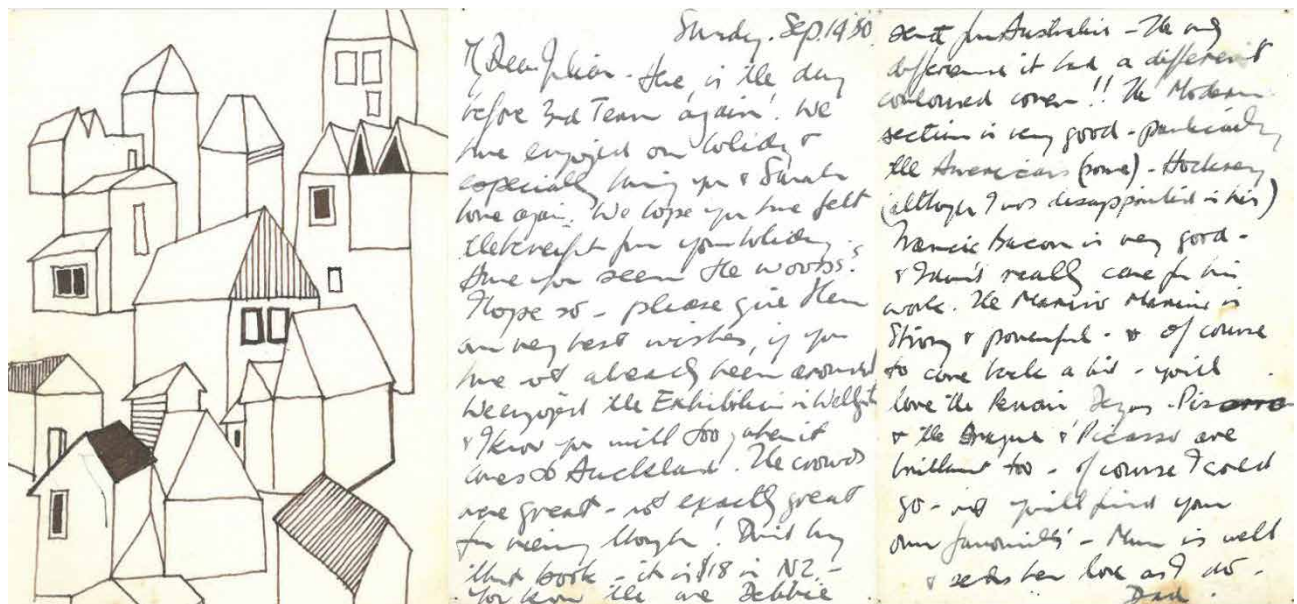 Sunday. Sep. 14 '80.
My Dear Julian - Here, is the day
before 3rd Term again! We
have enjoyed our holiday &
especially having you & Sarah
home again. We hope you have felt
the benefit from your holiday.
Have you seen the Woods?
I hope so - please give them
our very best wishes, if you
have not already been around
We enjoyed the Exhibition in Wellgtn
& I know you will too, when it
comes to Auckland. The crowds
were great - not exactly great
for viewing though! Don't buy
that book - it is $18 in NZ -
You know the one Debbie
sent from Australia - The only
difference it had a different
coloured cover!! The Modern
section is very good - particularly
the Americans (some) - Hockney
(although I was disappointed in his)
Francis Bacon is very good -
& I don't really care for his
work. The Marino Marini is
Strong & powerful - & of course
to come back a bit - you'll
love the Renoir Degas - Pissarro
& the Braque & Picasso are
brilliant too - of course I could
go - you'll find your
own favourites - Mum is well
& sends her love as I do -
Dad.